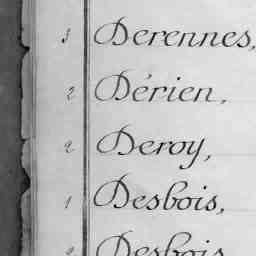 3 Derennes,
2 Dérien,
2 Deroy,
1 Desbois,
2 Desbois